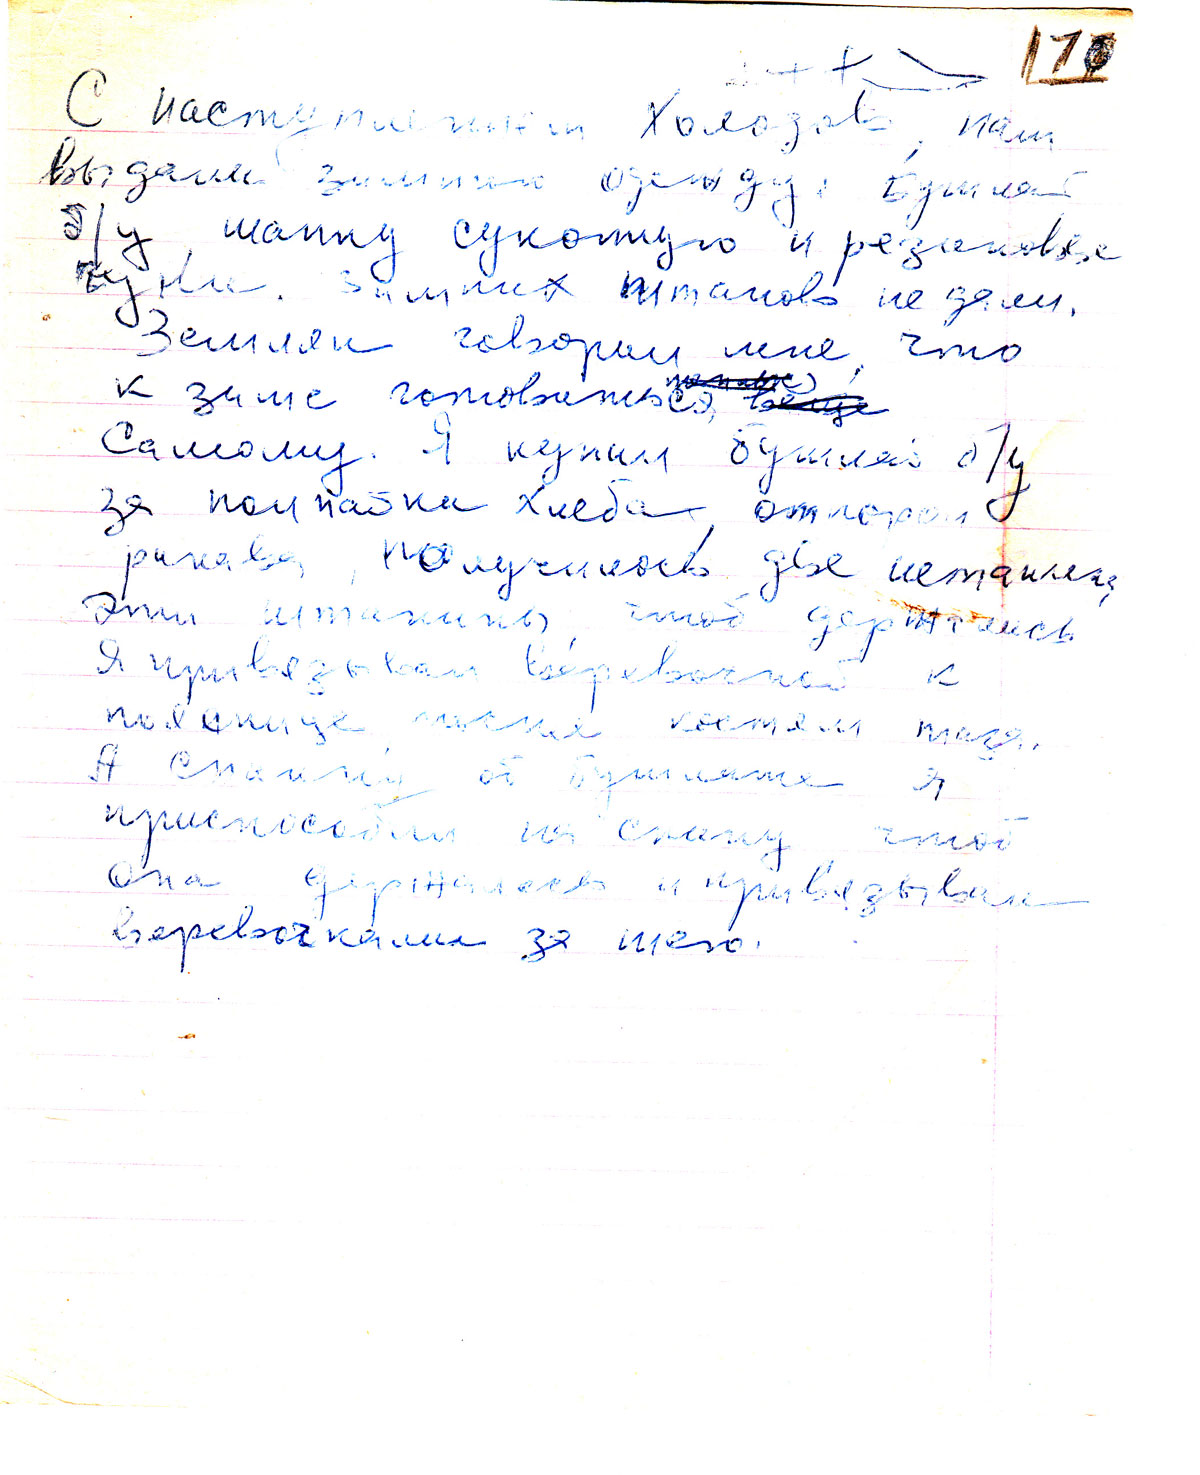 С наступлением холодов, нам
выдали зимнюю одежду: бушлат
б/у, шапку суконную и резиновые
чуни. Зимних штанов не дали.
Земляки говорили мне, что
к зиме готовиться,
самому. Я купил бушлат б/у
за полпайки хлеба, отпорол
рукава, получилось две штанины,
эти штанины, чтоб держались
я привязывал веревочкой к
пояснице, костям таза.
А спинку от бушлата я
приспособил на спину чтоб
она держалась и привязывал
веревочками за шею.